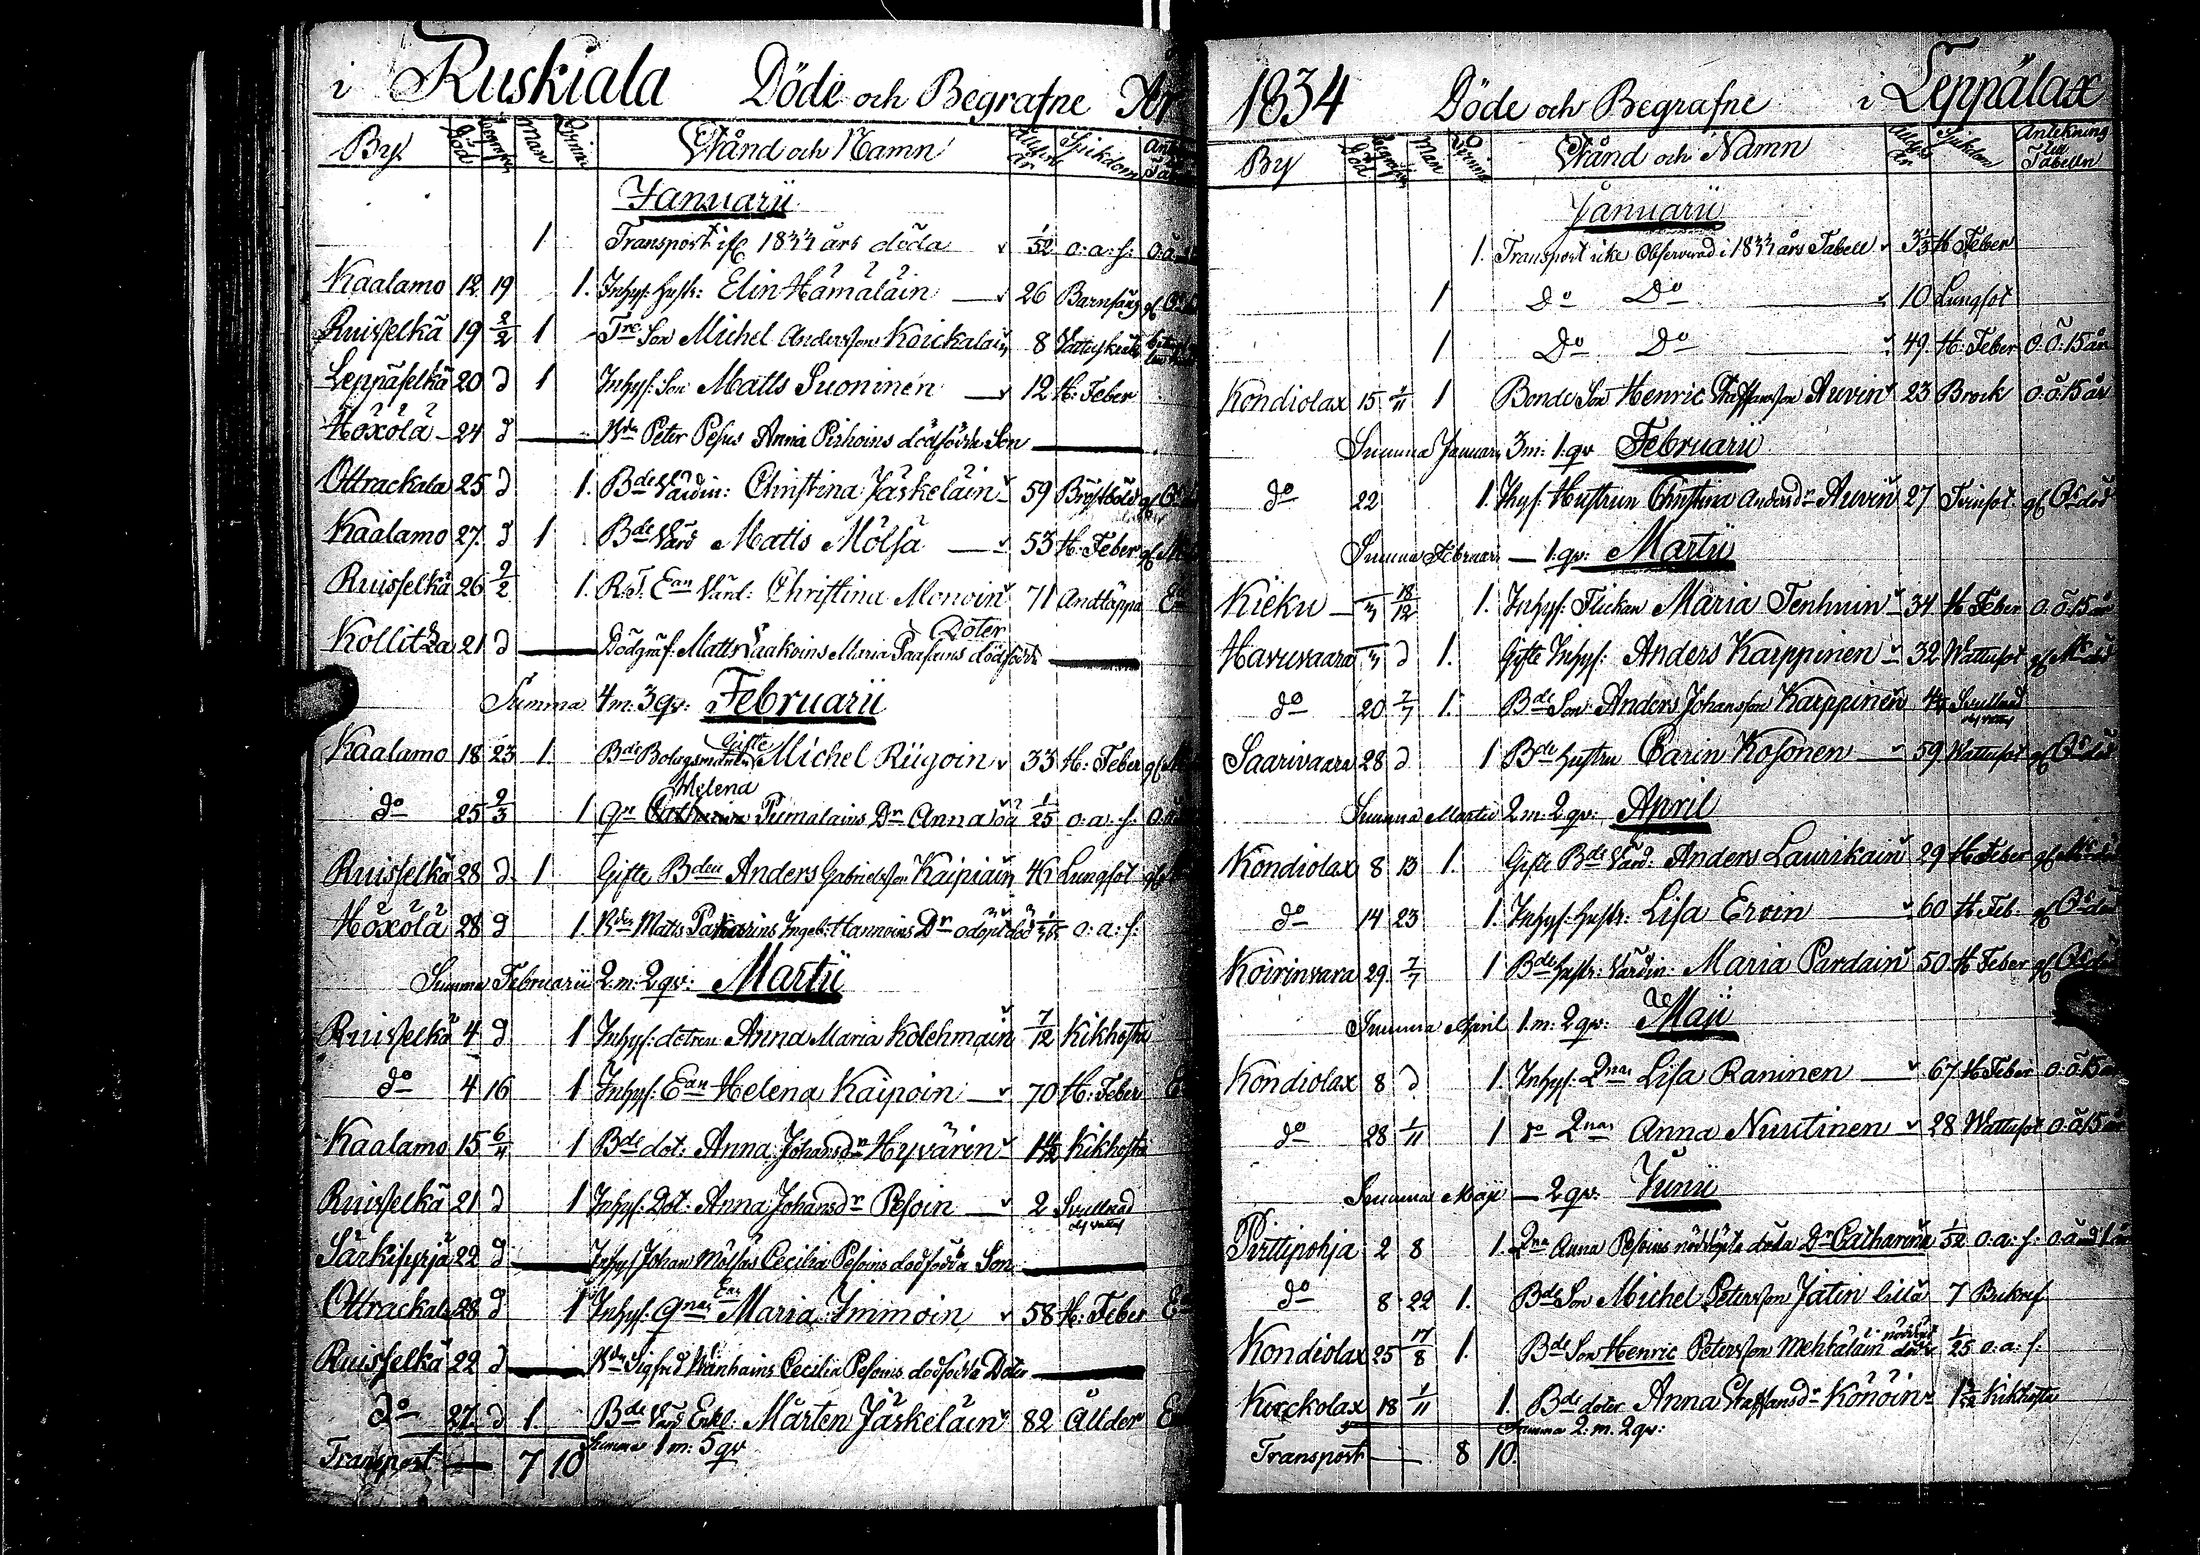 i Ruskiala Döde och Begrafne År
By Död Begrafne Man Qvinn Stånd och Namn Ålders år Sjukdom
Januarii
1 Transport ifr 1833 års döda 1/52 o: a: f:
Kaalamo 12 19 1. Inhys: Hustr: Elin Hämäläin 26 Barnsäng
Ruisselkä 19 2/2 1 Son Michel Andersson Koickalain 8
Leppäselkä 20 d 1 Inhys: Son Matts Suoninen 12 H: Feber
Höxölä 24 d Bde Peter Pesus Anna Pirhoins dödfödde Son
Ottrackala 25 d 1. Bde Värdin: Christina Jäskeläin 59 Bröstböld
Kaalamo 27. d 1 Bde Värd Matts Mölsä 53 H: Feber
Ruisselkä 26 2/2 1. R. T. Ean Värd: Christina Monoin 71 Andtäppa
Kollitza 21 d Matts Laakoins Maria Paasains dödfödde Doter
Summa 4 m: 3 qv: Februarii
Kaalamo 18 23 1. Bde Bolagsman Gifte Michel Riigoin 33 H: Feber
do 25 2/3 1 Helena Pumalains Dr Anna 1/25 o: a: f:
Ruisselkä 28 d 1 Gifte Bden Anders Gabrielsson Kaipiain 46 Lungsot
Höxölä 28 d 1. Bden Matts Pakarins Ingeb: Hannoins Dr odöpt död o: a: f:
Summa Februarii 2. m: 2 qv: Martii
Ruisselkä 4 d 1 Inhys: dotren Anna Maria Kolehmain 7/12 Kikhosta
do 4 16 1 Inhys: Ean Helena Kaipoin 70 H: Feber
Kaalamo 15 6/4 1 Bde dot: Anna Johansdr Hyvärin Kikhosta
Ruisselkä 21 d 1 Inhys: Dot: Anna Johansdr Pesoin 2 Svullnad
Särkisyrjä 22 d Inhys Johan Mölsäs Cecilia Pesoins dödfödda Son
Ottrackala 28 d 1 Inhys: Ean Maria Immoin 58 H: Feber
Ruisselkä 22 d Bde Sigfred Wänhains Cecilia Pesoins dödfödda Doter
do 27. d 1. Bde Värd Enkl: Mårten Jäskeläin 82 Ålder
Transport 7 10 Summa 1 m: 5 qv
1834 Döde och Begrafne i Leppälax
By Död Begrafne Man Qvinn Stånd och Namn Ålders År Sjukdom Antekning till Tabelln
Januarii
1. Transport icke Observerad i 1833 års Tabell H Feber
1 Do Do 10 Lungsot
1 Do Do 49. H: Feber o: ö: 15 år
Kondiolax 15 1/11 1 Bonde Son Henric Staffansson Auvin 23 Brock o: ö: 15 år
Summa Januari 3 m: 1. qv Februarii
do 22 1. Inhys: Hustrun Christina Andersdr Auvin 27 Tvinsot
Summa Februari 1. qv: Martii
Kieku 18/12 1. Inhys: Flickan Maria Tenhuin 34 H Feber o. ö. 15 år
Havuvaara d 1. Gifte Inhys: Anders Karppinen 32 Wattusot
do 20 7/7 1. Bde Son Anders Johansson Karppinen Svullnad
Saarivaara 28 d 1 Bde Hustru Carin Kosonen 59 Wattusot
Summa Martii 2 m: 2 qv: April
Kondiolax 8 13 1. Gifte Bde Värd: Anders Laurikain 29 H Feber
do 14 23 1. Inhys: Hustr: Lisa Ervin 60 H Feb.
Koirinvara 29. 7/7 1 Bde Hustr: Värdin: Maria Pardain 50 H Feber
Summa April 1. m: 2 qv: Maji
Kondiolax 8 d 1. Inhys: Lisa Raninen 67 H Feber o. ö 15 år
do 28 1/11 1 do Anna Nuutinen 28 Wattusot o. ö 15 år
Summa Maji 2 qv: Junii
Pirttipohja 2 8 1. Anna Pesoins nöddöpta döda Dr Catharina 1/52 o: a: f:
do 8 22 1. Bde Son Michel Petersson Jatin 7
Kondiolax 25 17/8 1. Bde Son Henric Petersson Mehtälain 1/25 o: a: f:
Kuckolax 18 1/11 1. Bde doter Anna Staffansdr Kononin Kikhosta
Summa 2. m. 2 qv:
Transport 8 10.